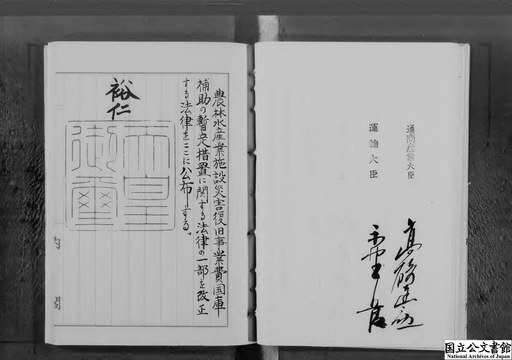 農林水産業施設災害復旧事業費国庫
補助の暫定措置に関する法律の一部を改正
する法律をここに公布する。
裕仁
天皇
御璽
内閣
通商産業大臣
運輸大臣
国立公文書館
National Archives of Japan